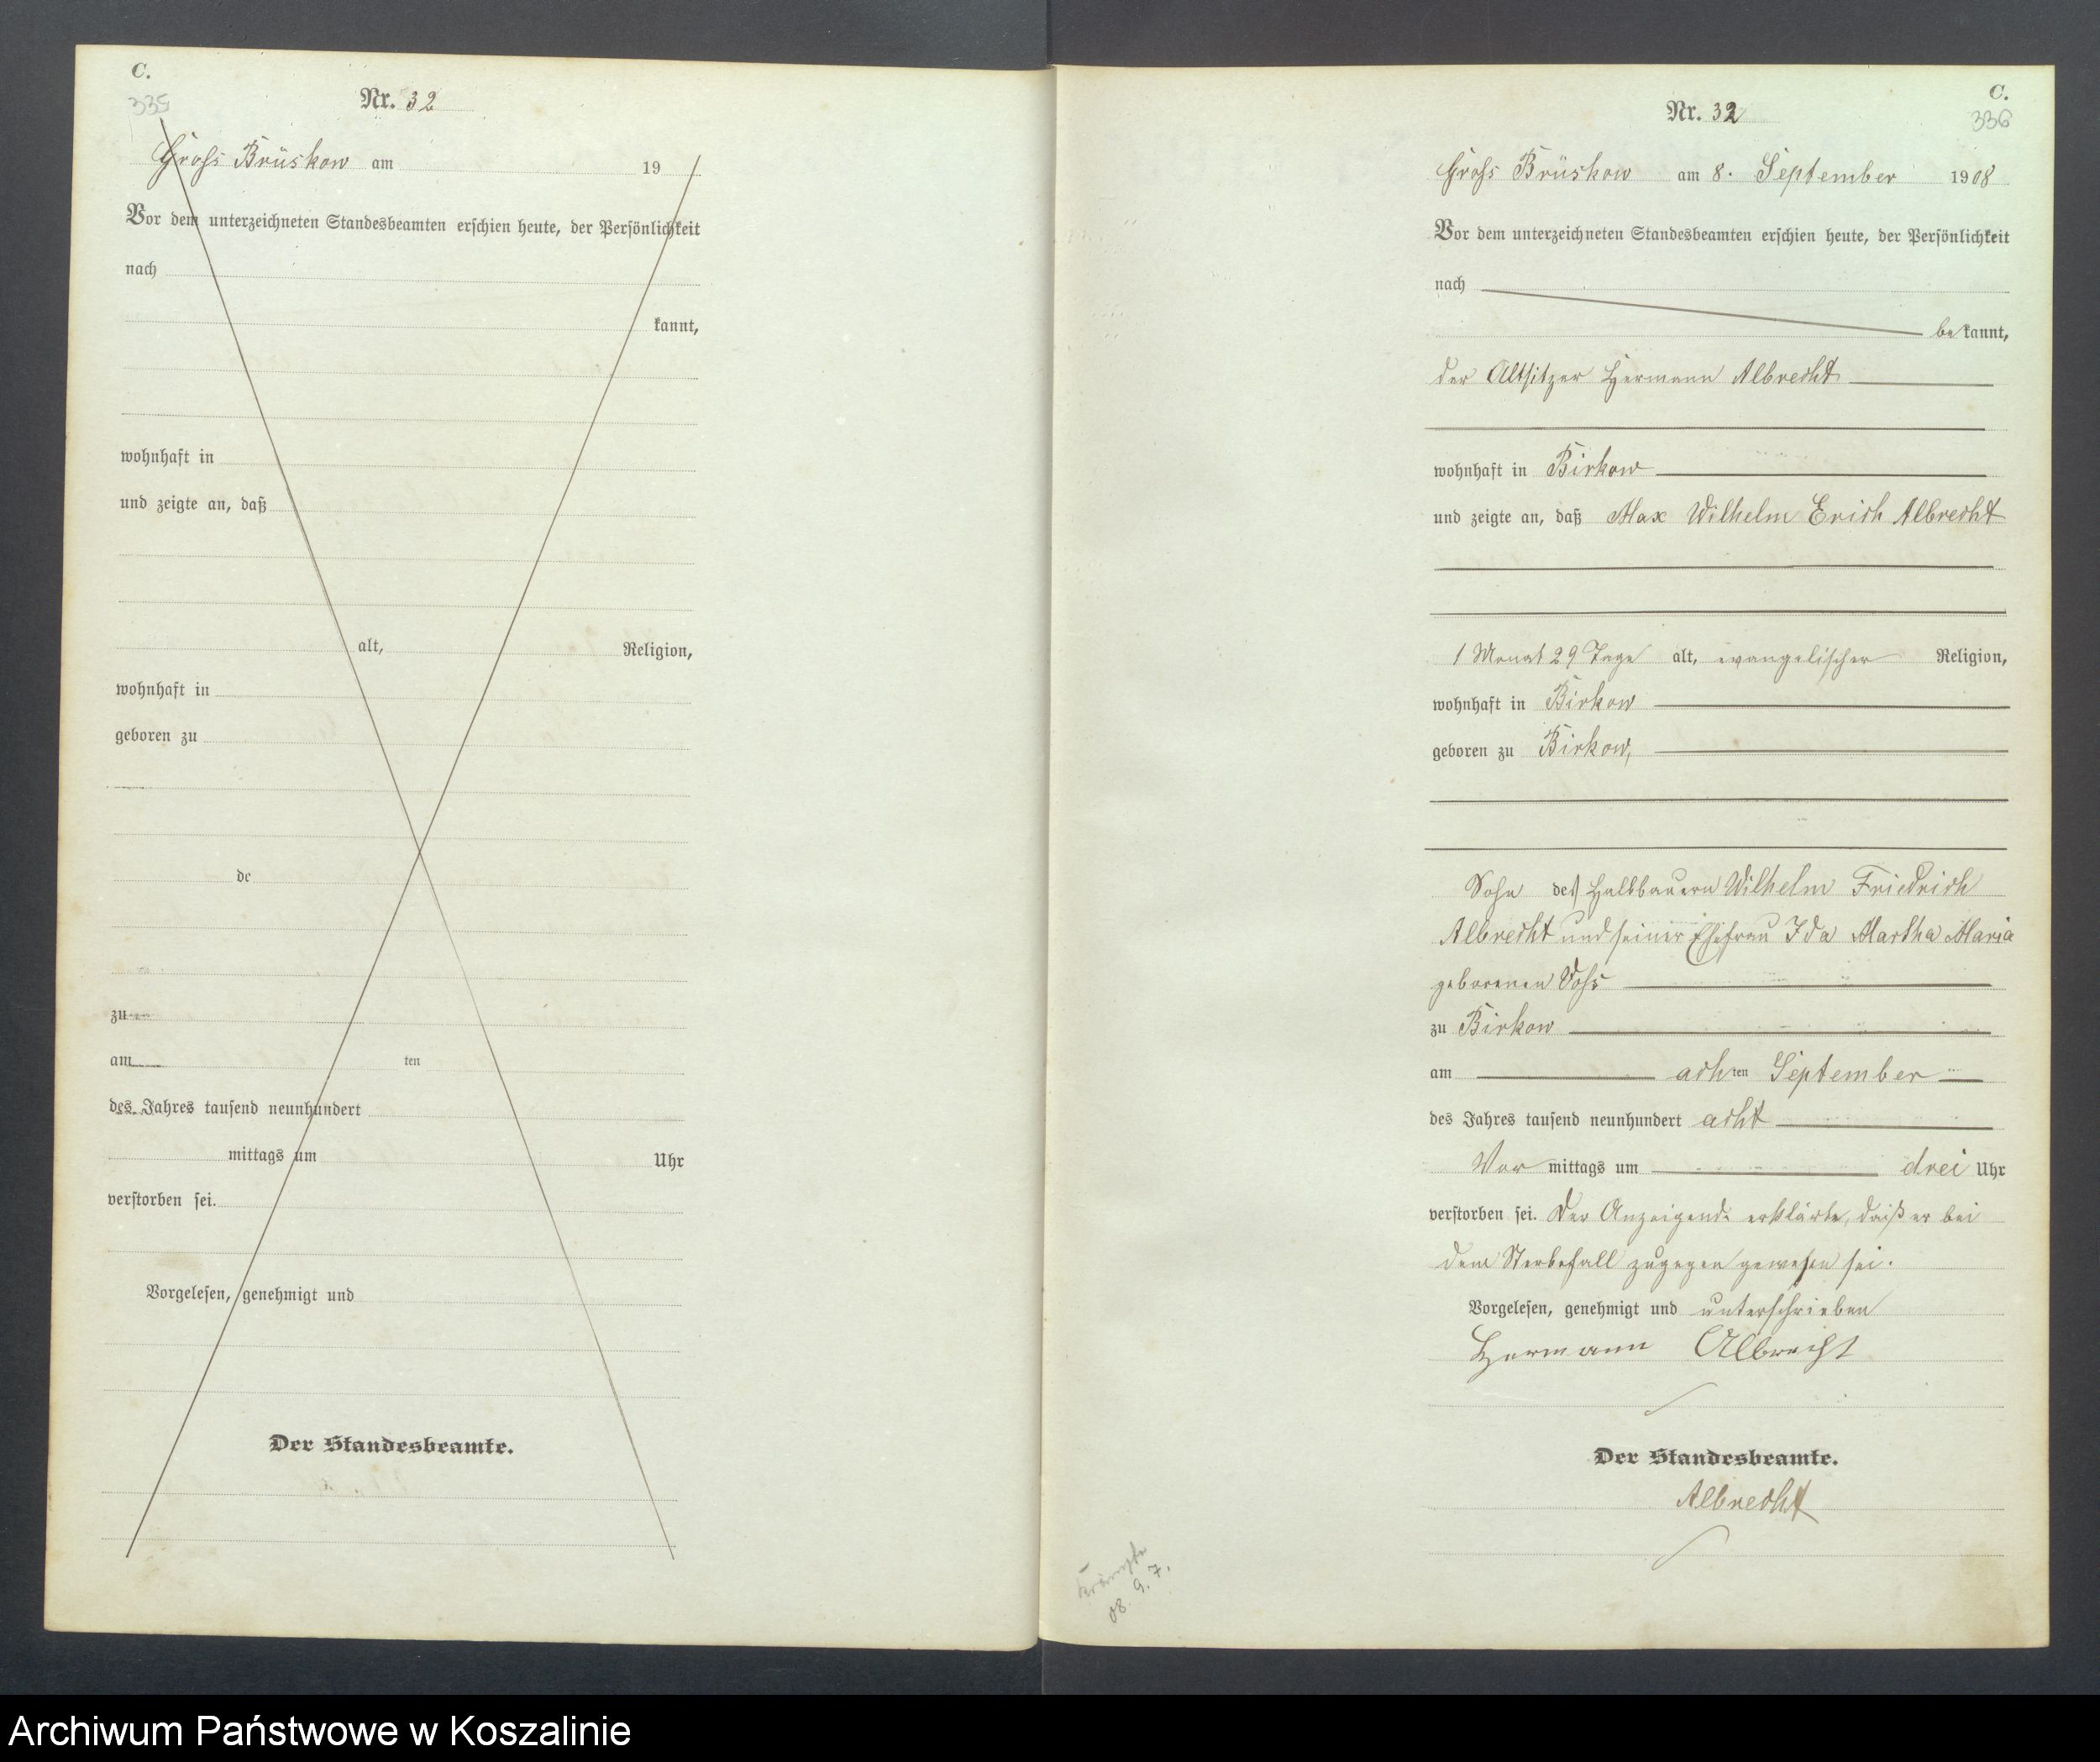 C.
335
Nr. 32
Groß Brüskow am 19
Vor dem unterzeichneten Standesbeamten erschien heute, der Persönlichkeit
nach
kannt,
wohnhaft in
und zeigte an, daß
alt, Religion,
wohnhaft in
geboren zu
de
zu
am ten
des Jahres tausend neunhundert
mittags um Uhr
verstorben sei.
Vorgelesen, genehmigt und
Der Standesbeamte.
C.
336
Nr. 32
Groß Brüskow am 8. September 1908
Vor dem unterzeichneten Standesbeamten erschien heute, der Persönlichkeit
nach
bekannt,
der Altsitzer Hermann Albrecht
wohnhaft in Birkow
und zeigte an, daß Max Wilhelm Erich Albrecht
1 Monat 29 Tage alt, evangelischer Religion,
wohnhaft in Birkow
geboren zu Birkow,
Sohn des Halbbauern Wilhelm Friedrich
Albrecht und seiner Ehefrau Ida Martha Maria
geborenen Voß
zu Birkow
am achten September
des Jahres tausend neunhundert acht
Vor mittags um drei Uhr
verstorben sei. Der Anzeigende erklärte, daß er bei
dem Sterbefall zugegen gewesen sei.
Vorgelesen, genehmigt und unterschrieben
Hermann Albrecht
Der Standesbeamte.
Albrecht
08. 9. 7.
Archiwum Państwowe w Koszalinie